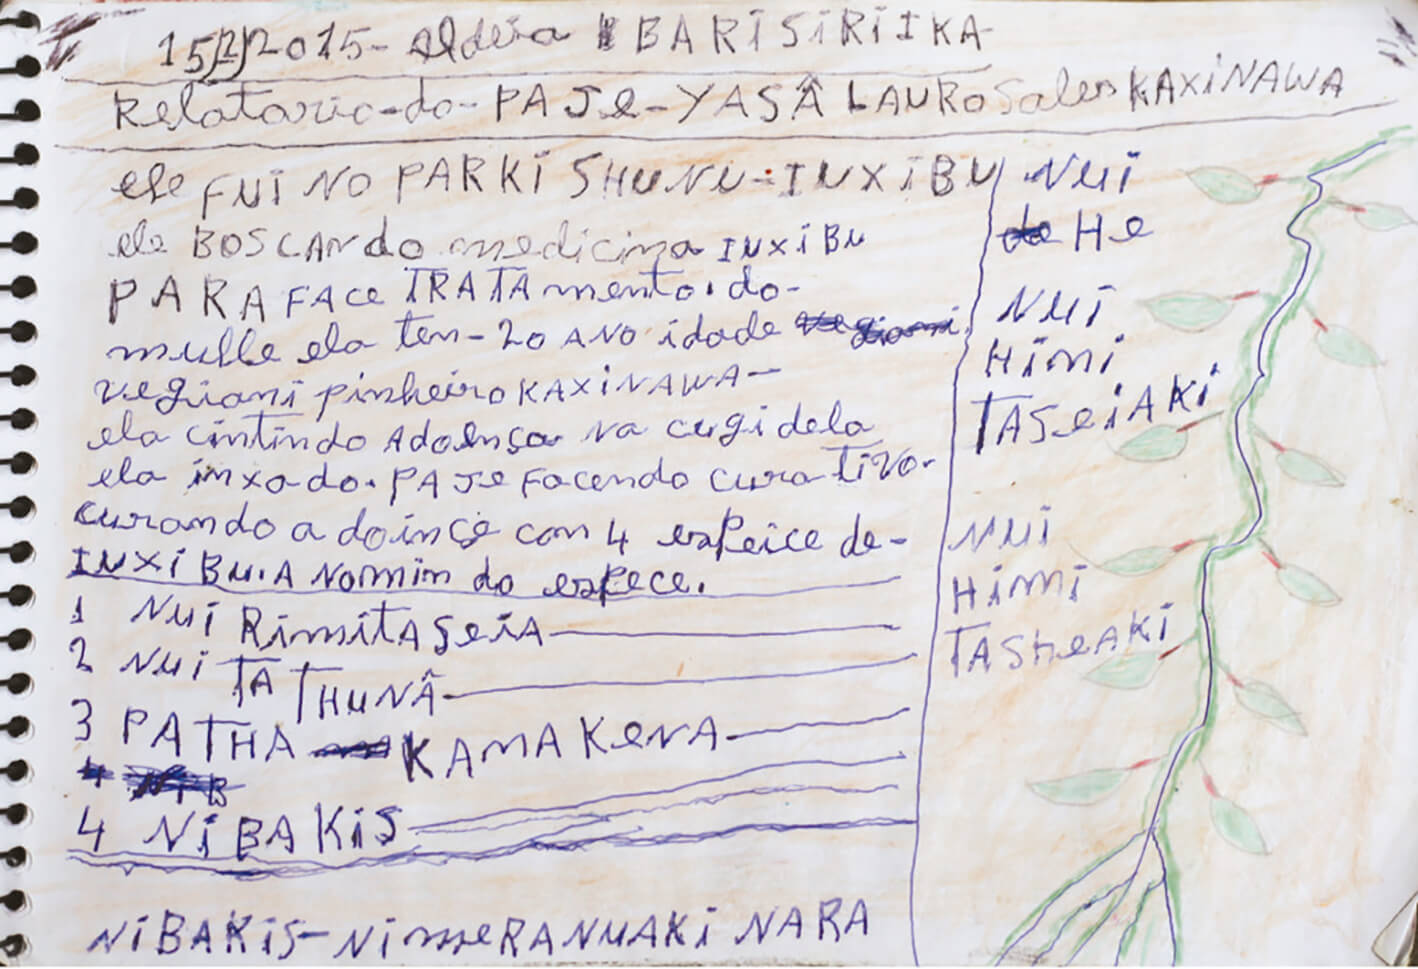 2015- aldeia BARISIRIIKA
Relatorio-do-PAJE-YASÂ LAURO Sales KAXiNAWA
ele FUi NO PARKi SHUNU-INXiBU
ele BOSCANdo medicina INXiBU
PARA FACe TRATAmento.do-
mulhe ela ten-20 ANO idade
vegiani pinheiro KAXiNAWA-
ela cintindo Adoença na cugidela
ela inxado. PAJe Facendo curaTivo.
curando a doinçe con 4 espeice de-
INXiBU.A Nomim do espece.
1 NUi RimiTASeiA
2 NUi TATHUNÂ
3 PATHA KAMAKENA
4 NiBAKiS
NiBAKiS-NimeRANUAKi NARA
NUi
He
NUi
Himi
TASeiAKi
NUi
Himi
TASHeAKi